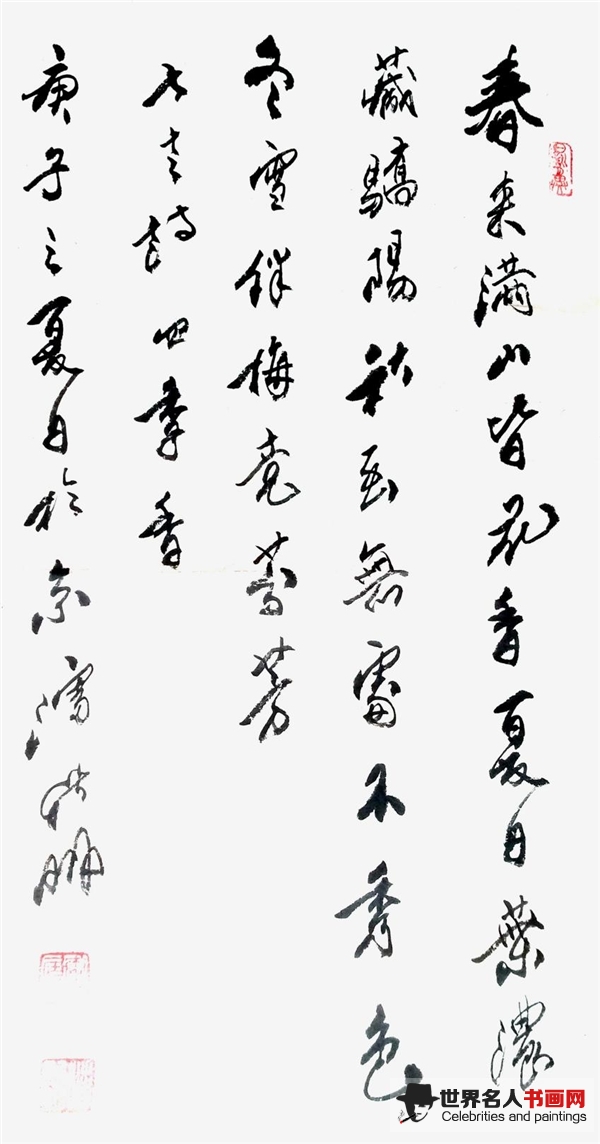 春来滿山皆花香夏日葉濃
藏驕陽秋至無不秀色
冬雪伴梅竞芬芳
七言詩四季香
庚子之夏日於京
世界名人书画网
Celebrities and paintings